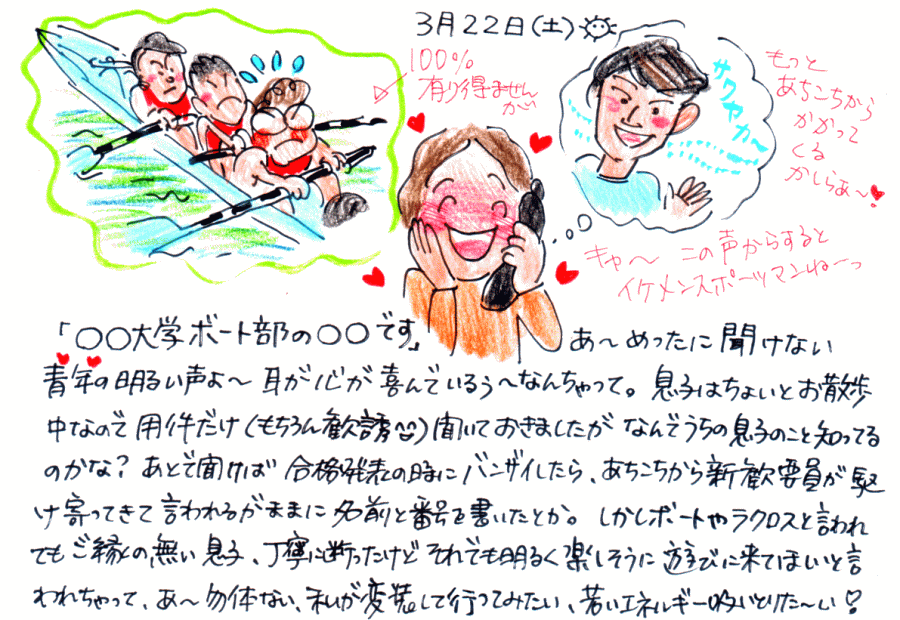 3月22日(土)
100%
有り得ません
が
サワヤカ
もっと
あちこちから
かかって
くる
かしらぁ〜♥
キャ〜 この声からすると
イケメンスポーツマンねーっ
「〇〇大学ボート部の〇〇です」 あ〜めったに聞けない
青年の明るい声よ〜耳が心が喜んでいるぅ〜なんちゃって。息子はちょいとお散歩
中なので用件だけ(もちろん歓誘)聞いておきましたがなんでうちの息子のこと知ってる
のかな?あとで聞けば合格発表の時にバンザイしたら、あちこちから新歓要員が駆
け寄ってきて言われるがままに名前と番号を書いたとか。しかしボートやラクロスと言われ
てもご縁の無い息子、丁寧に断ったけどそれでも明るく楽しそうに遊びに来てほしいと言
われちゃって、あ〜勿体ない、私が変装して行ってみたい、若いエネルギー吸いとりた〜い♡